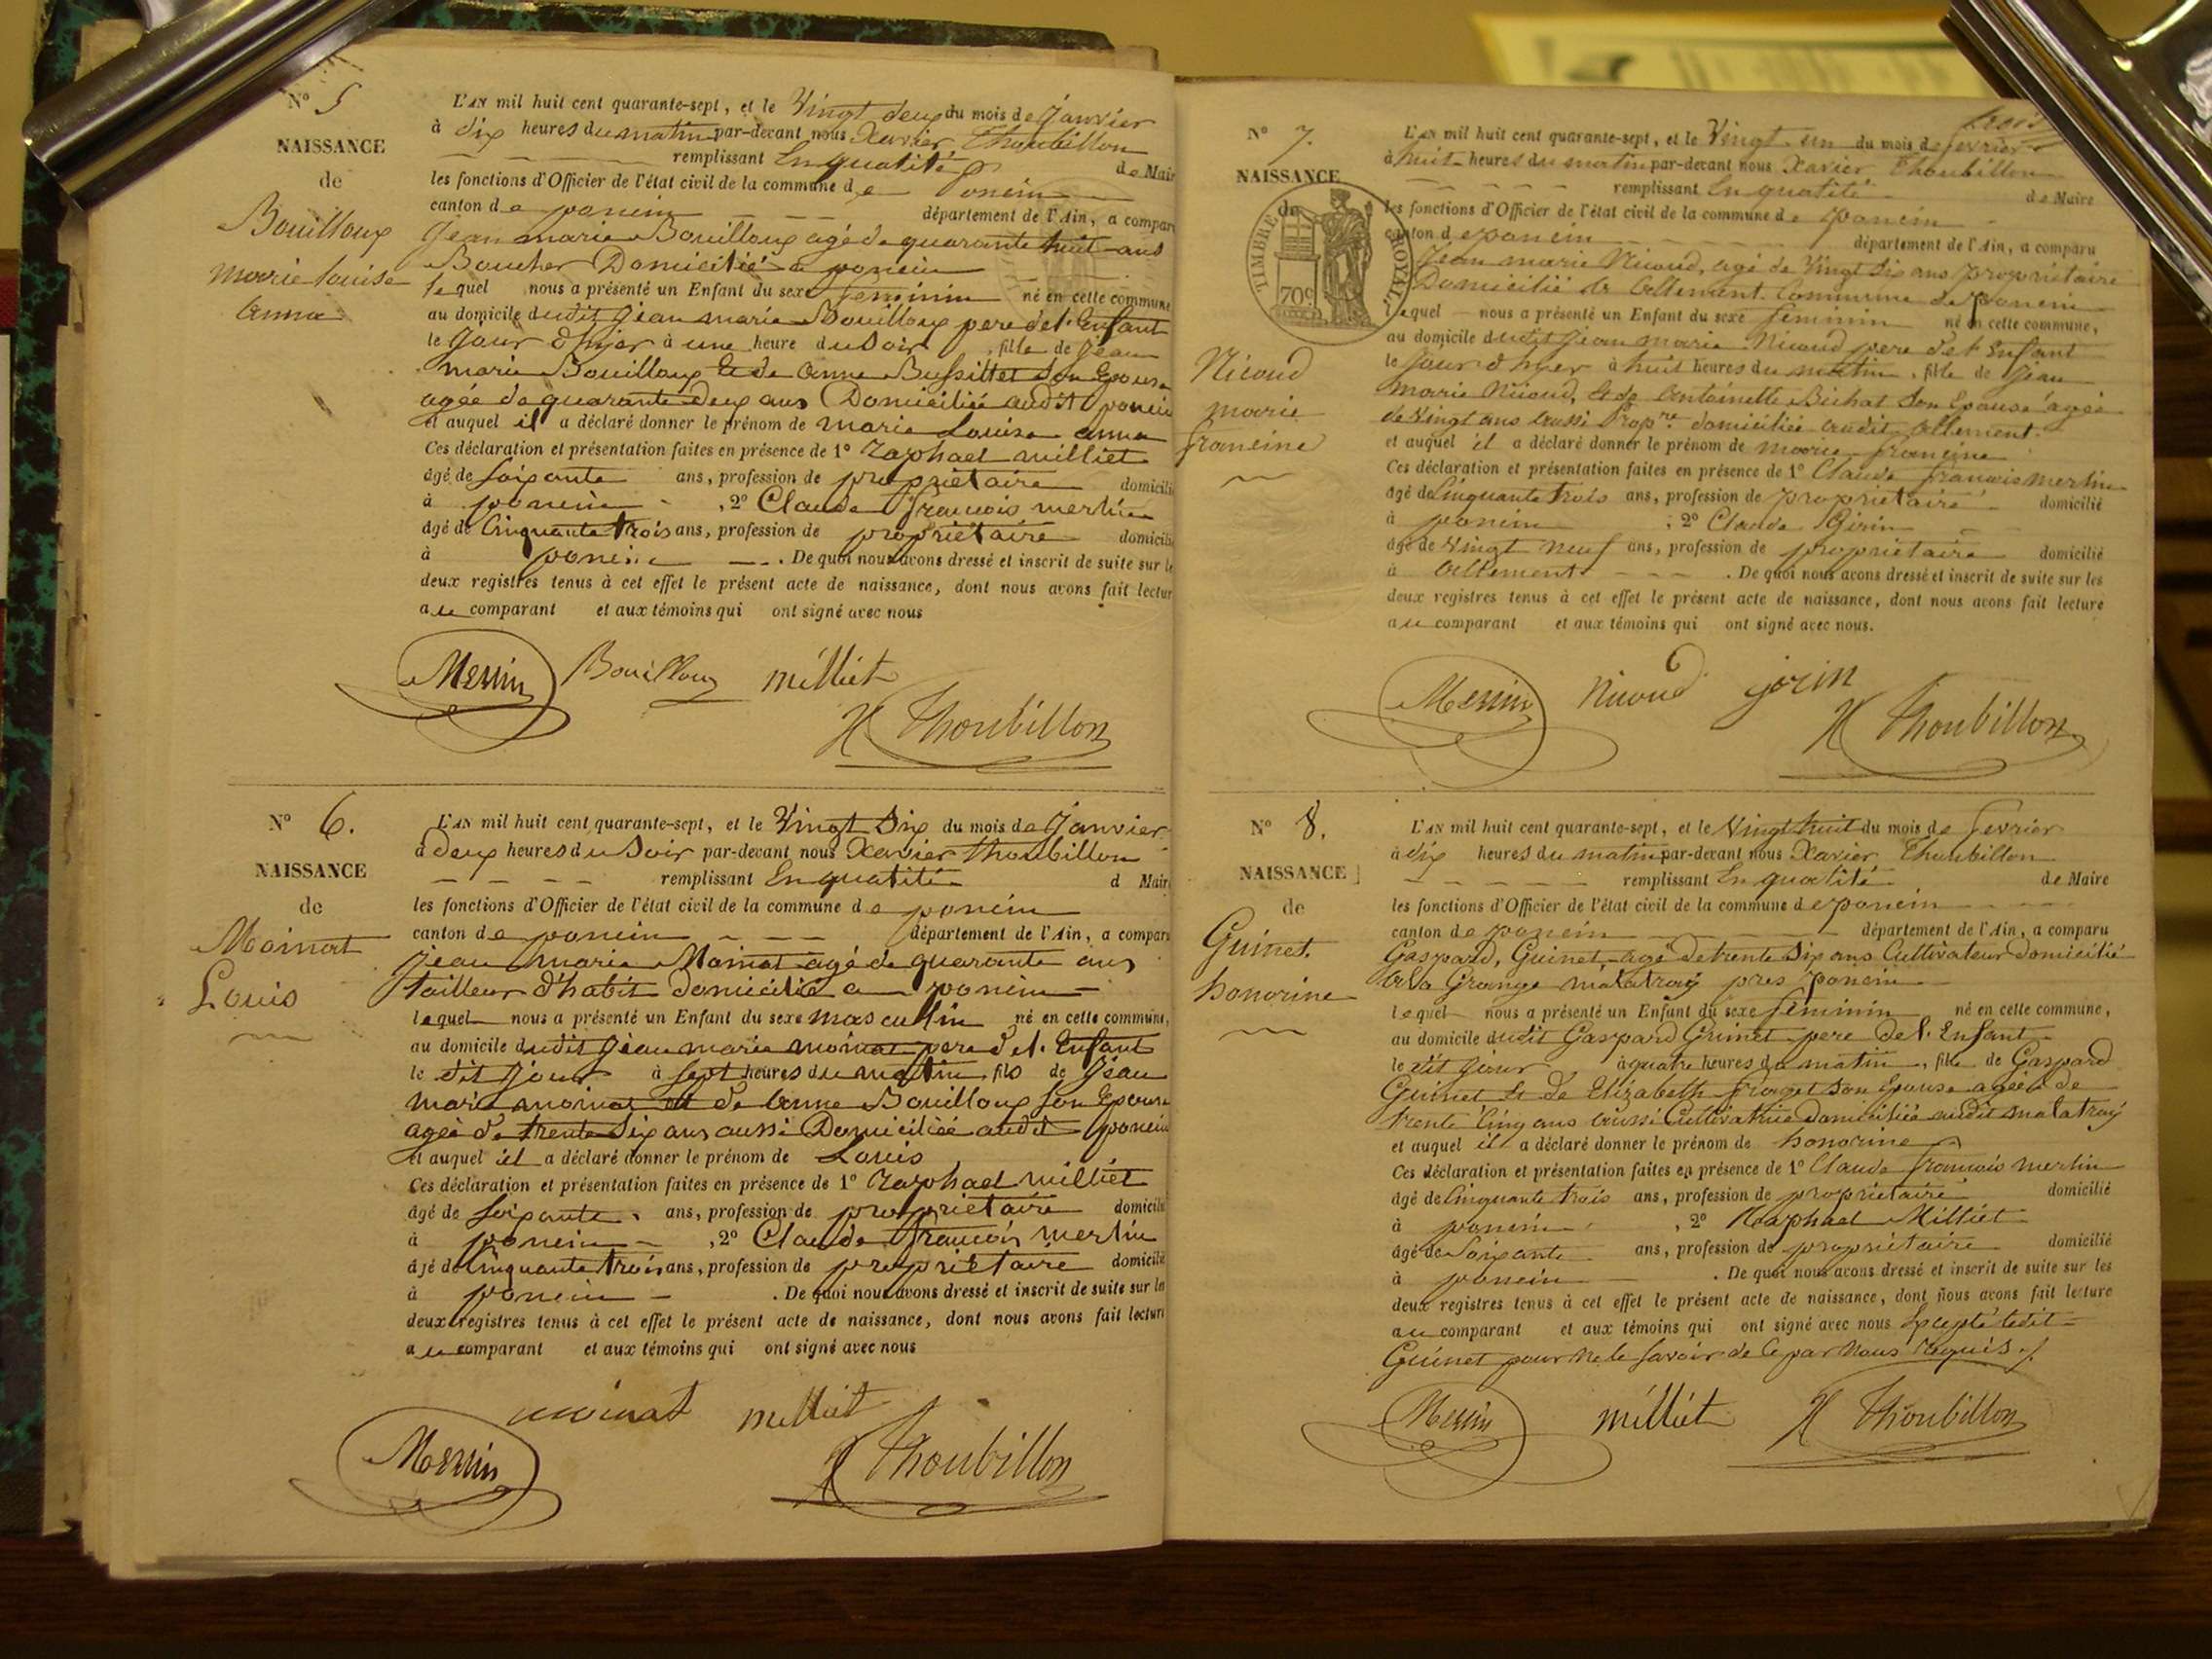 N° 5
NAISSANCE
de
Bouilloux
marie louise
anna
L'AN mil huit cent quarante-sept, et le Vingt deux du mois de Janvier
à dix heures du matin par-devant nous Xavier Thoubillon
remplissant En qualité de Mair
les fonctions d'Officier de l'état civil de la commune de poncin
canton de poncin département de l'Ain, a compar
Jean marie Bouilloux agé de quarante huit ans
Boucher Domicilié a poncin
lequel nous a présenté un Enfant du sexe feminin né en cette commune
au domicile dudit Jean marie Bouilloux pere de l'Enfant
le Jour d'hyer à une heure du Soir, fille de Jean
marie Bouilloux et de anne Bussillet son Epouse
agée de quarante deux ans Domiciliée audit poncin
et auquel il a déclaré donner le prénom de marie Louise anna
Ces déclaration et présentation faites en présence de 1° Raphael milliet
âgé de Soixante ans, profession de propriétaire domicili
à poncin, 2° Claude francois merlin
âgé de Cinquante trois ans, profession de propriétaire domicili
à poncin. De quoi nous avons dressé et inscrit de suite sur le
deux registres tenus à cet effet le présent acte de naissance, dont nous avons fait lectur
au comparant et aux témoins qui ont signé avec nous
Merlin Bouilloux milliet
X Thoubillon
N° 6.
NAISSANCE
de
Moinat
Louis
L'AN mil huit cent quarante-sept, et le Vingt Six du mois de Janvier
à deux heures du Soir par-devant nous Xavier Thoubillon
remplissant En qualité d Mair
les fonctions d'Officier de l'état civil de la commune de poncin
canton de poncin département de l'Ain, a compar
Jean marie Moinat agé de quarante ans
tailleur d'habit domicilié a poncin
lequel nous a présenté un Enfant du sexe masculin né en cette commune,
au domicile dudit Jean marie moinat pere de l'Enfant
le dit Jour à Sept heures du matin, fils de Jean
marie moinat et de anne Bouilloux son Epouse
agée de trente Six ans aussi Domiciliée audit poncin
et auquel il a déclaré donner le prénom de Louis
Ces déclaration et présentation faites en présence de 1° Raphael milliet
âgé de Soixante ans, profession de propriétaire domicilié
à poncin, 2° Claude francois merlin
âgé de Cinquante trois ans, profession de propriétaire domicilié
à poncin. De quoi nous avons dressé et inscrit de suite sur les
deux registres tenus à cet effet le présent acte de naissance, dont nous avons fait lectur
au comparant et aux témoins qui ont signé avec nous
moinat milliet
Merlin X Thoubillon
trois
N° 7.
NAISSANCE
de
TIMBRE ROYAL
70c
Nicoud
marie
francine
L'AN mil huit cent quarante-sept, et le Vingt un du mois de fevrier
à huit heures du matin par-devant nous Xavier Thoubillon
remplissant En qualité de Maire
les fonctions d'Officier de l'état civil de la commune de poncin
canton de poncin département de l'Ain, a comparu
Jean marie Nicoud, agé de Vingt Six ans propriétaire
Domicilié à allement Commune de poncin
lequel nous a présenté un Enfant du sexe feminin né en cette commune,
au domicile dudit Jean marie Nicoud pere de l'Enfant
le Jour d'hyer à huit heures du matin, fille de Jean
marie Nicoud, et de antoinette Bichat son Epouse agée
de Vingt ans aussi Propre domiciliée audit allement.
et auquel il a déclaré donner le prénom de marie francine
Ces déclaration et présentation faites en présence de 1° Claude francois merlin
âgé de Cinquante trois ans, profession de propriétaire domicilié
à poncin, 2° Claude Girin
âgé de Vingt neuf ans, profession de propriétaire domicilié
à allement. De quoi nous avons dressé et inscrit de suite sur les
deux registres tenus à cet effet le présent acte de naissance, dont nous avons fait lecture
au comparant et aux témoins qui ont signé avec nous.
Merlin Nicoud girin
X Thoubillon
N° 8.
NAISSANCE
de
Guinet
honorine
L'AN mil huit cent quarante-sept, et le Vingt huit du mois de fevrier
à dix heures du matin par-devant nous Xavier Thoubillon
remplissant En qualité de Maire
les fonctions d'Officier de l'état civil de la commune de poncin
canton de poncin département de l'Ain, a comparu
Gaspard, Guinet agé de trente Six ans Cultivateur domicilié
à la Grange malatray pres poncin
lequel nous a présenté un Enfant du sexe féminin né en cette commune,
au domicile dudit Gaspard Guinet pere de l'Enfant
le dit Jour à quatre heures du matin, fille de Gaspard
Guinet et de Elizabeth froget son Epouse agée de
trente Cinq ans aussi Cultivatrice domiciliée audit malatray
et auquel il a déclaré donner le prénom de honorine
Ces déclaration et présentation faites en présence de 1° Claude francois merlin
âgé de Cinquante trois ans, profession de propriétaire domicilié
à poncin, 2° Raphael Milliet
âgé de Soixante ans, profession de propriétaire domicilié
à poncin. De quoi nous avons dressé et inscrit de suite sur les
deux registres tenus à cet effet le présent acte de naissance, dont nous avons fait lecture
au comparant et aux témoins qui ont signé avec nous Excepté ledit
Guinet pour ne le savoir de ce par nous requis ./.
Merlin milliet X Thoubillon